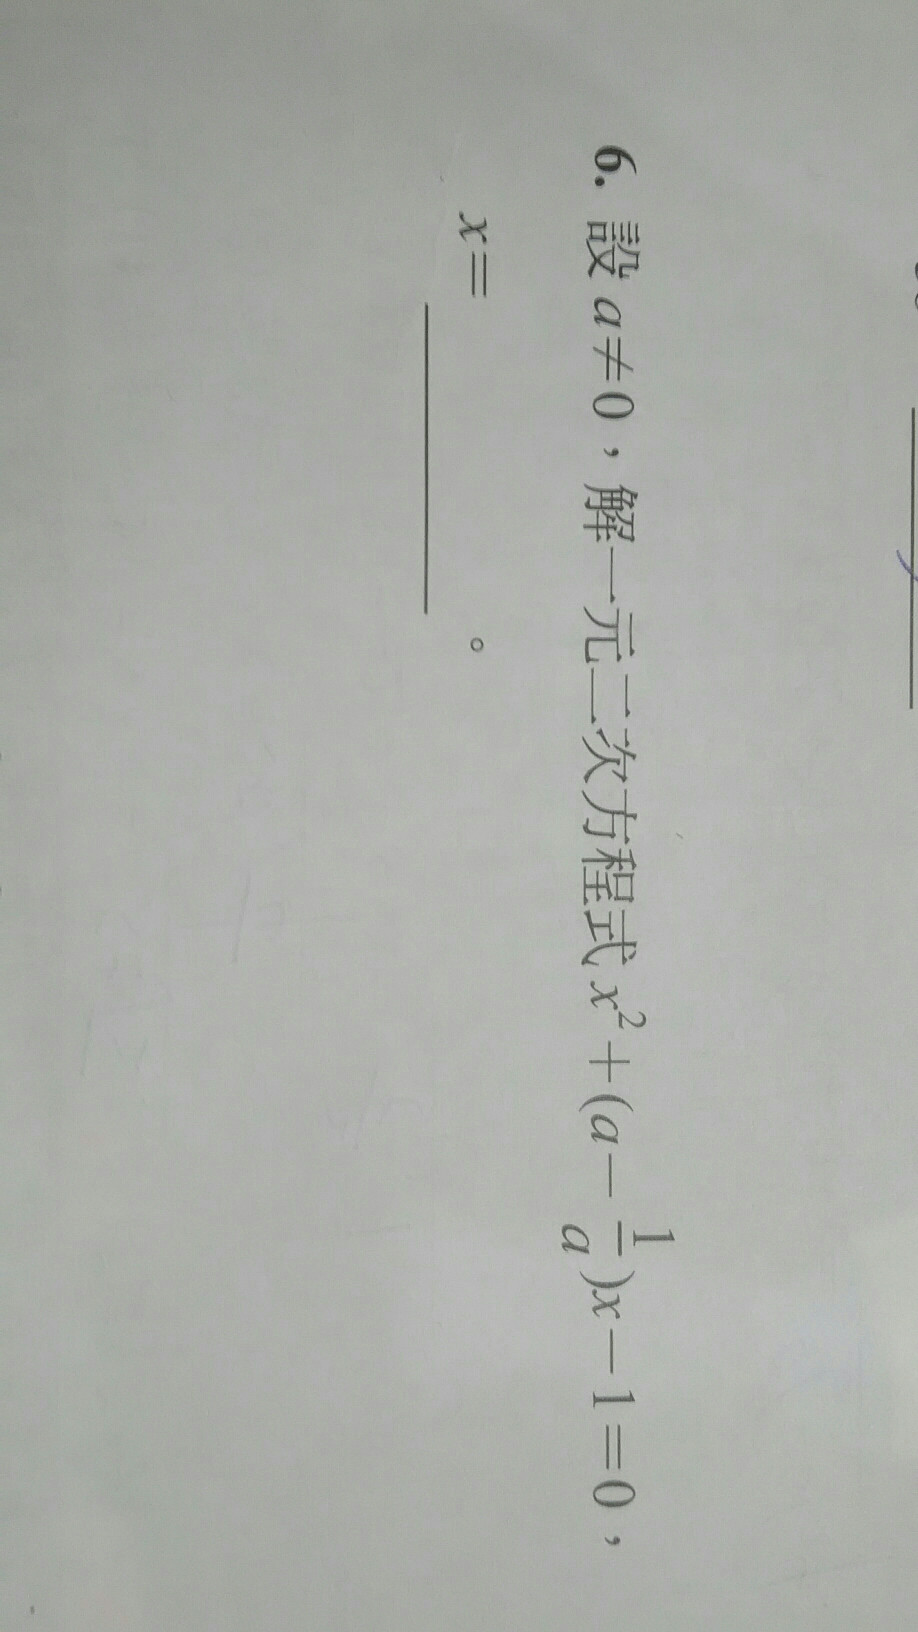 6. 設 a≠0，解一元二次方程式 x²+(a-\frac{1}{a})x-1=0，
x=＿＿＿＿＿。